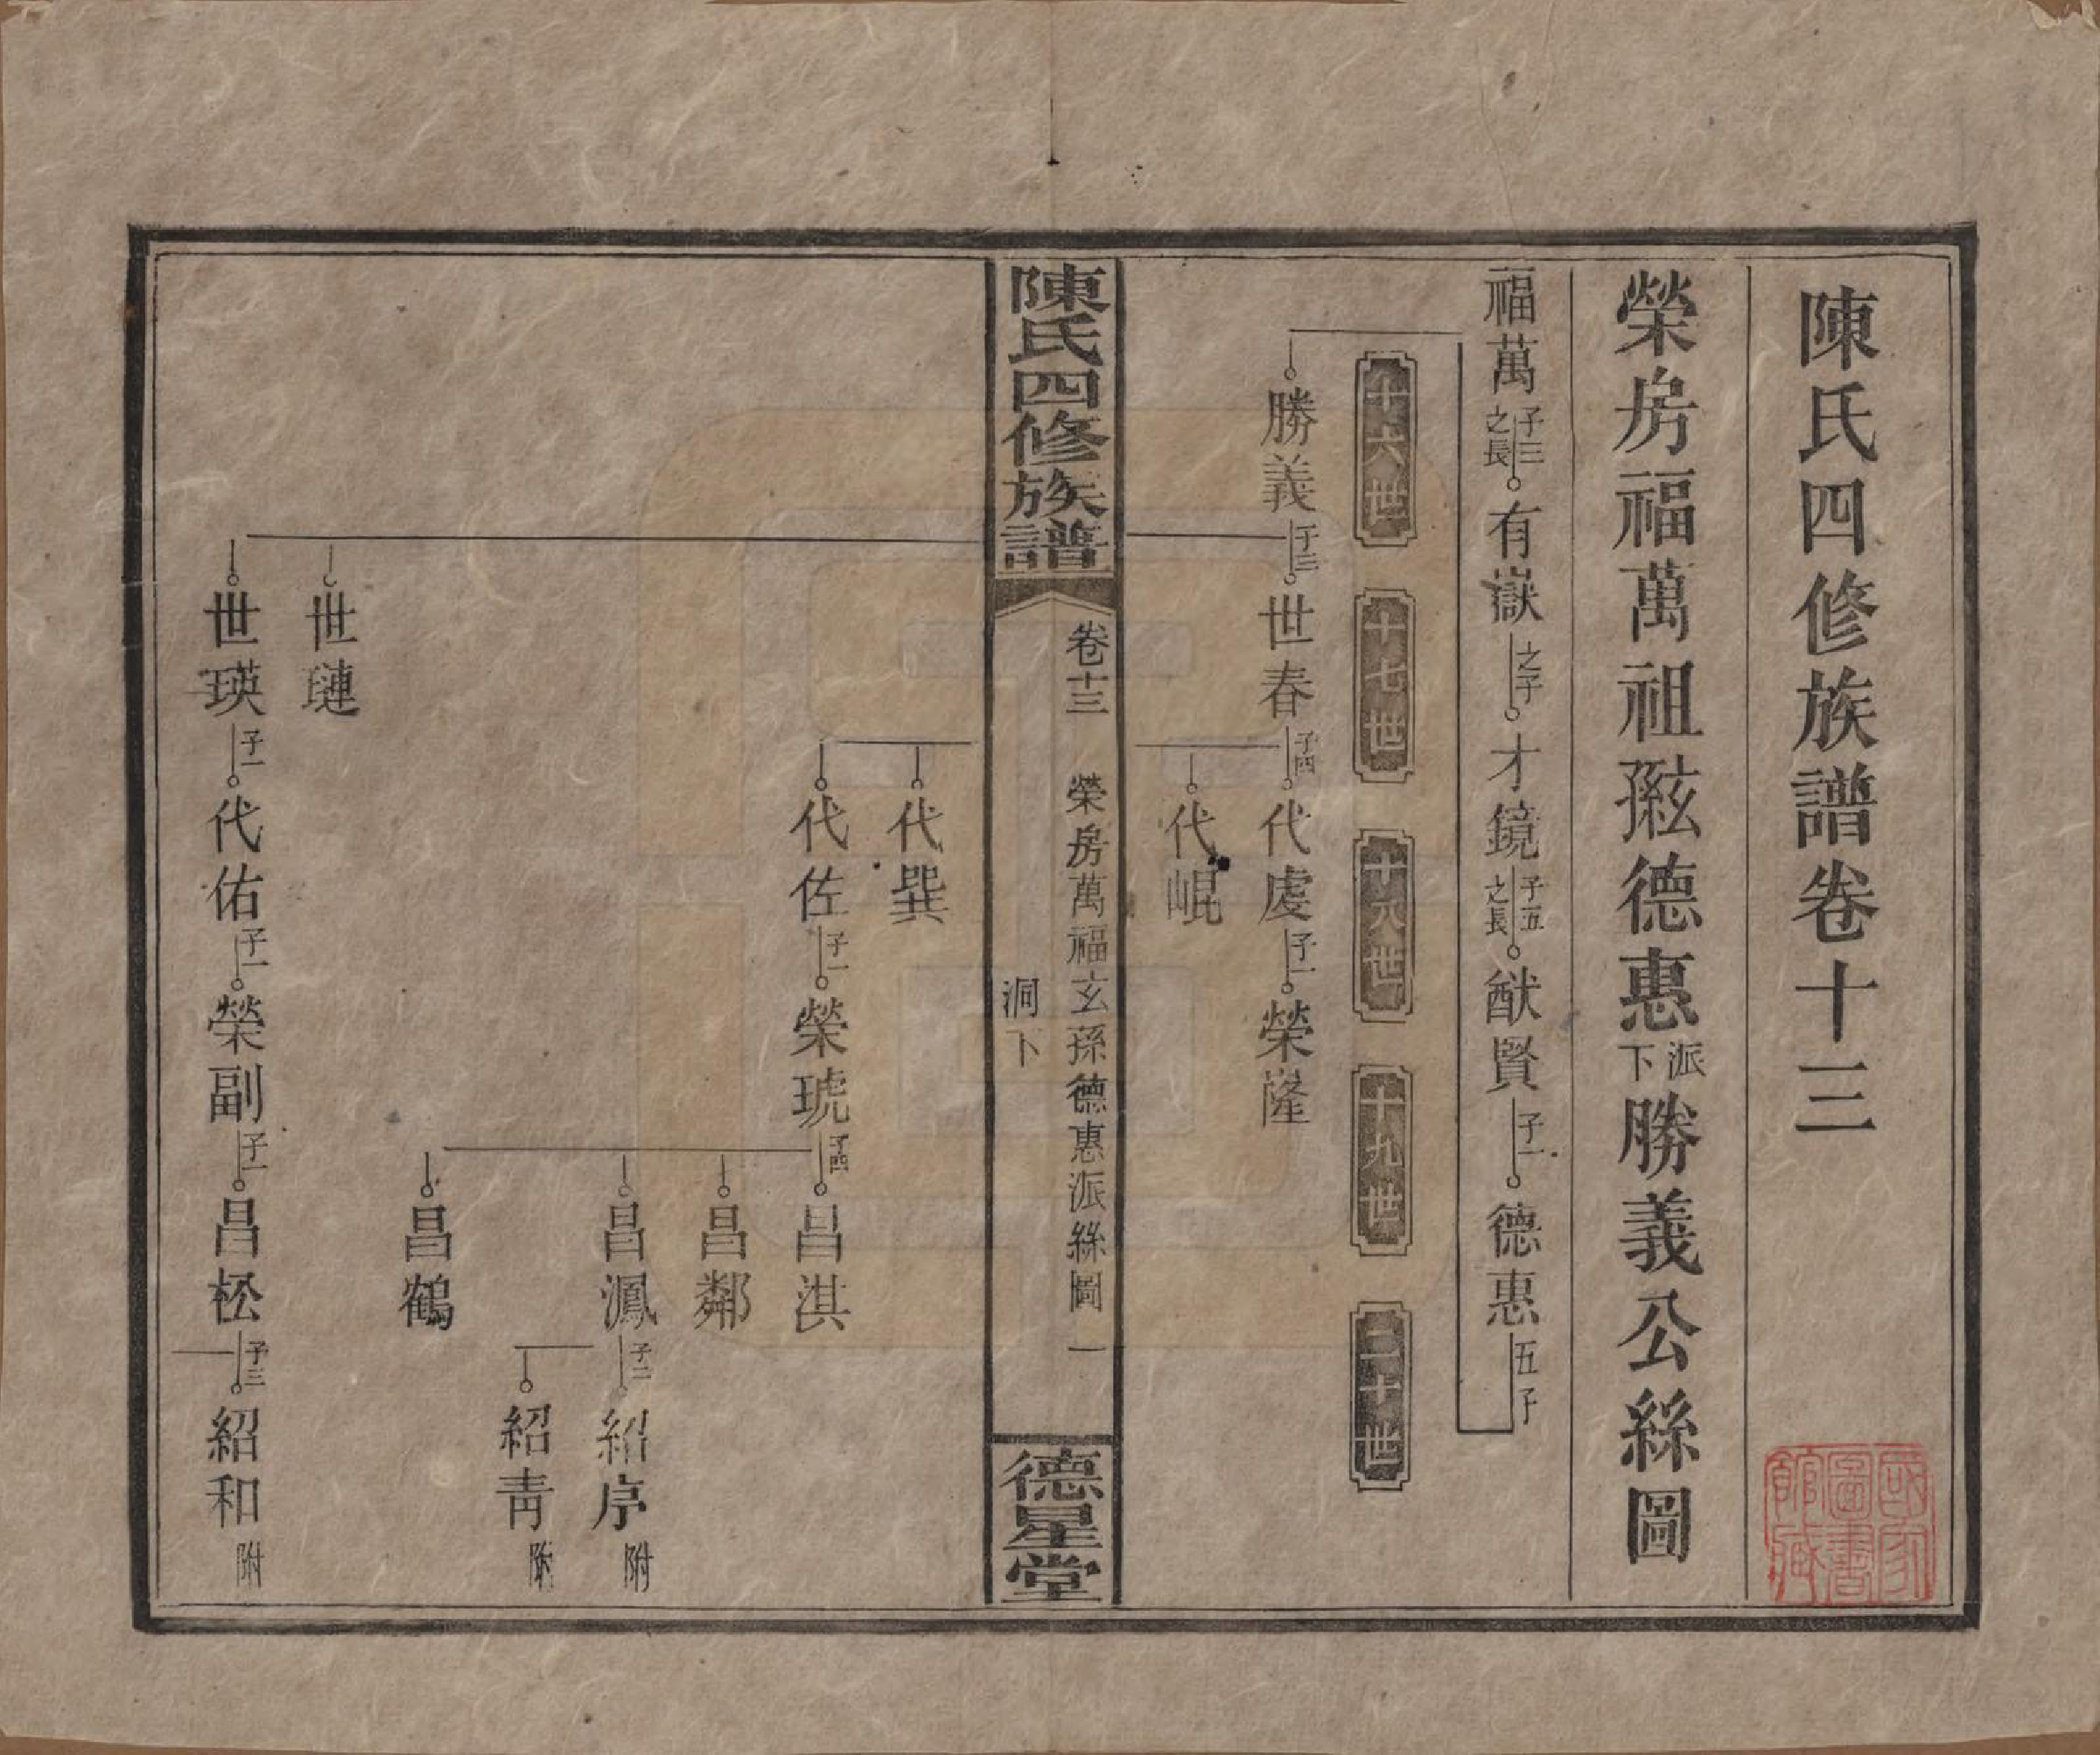 陳氏四修族譜卷十三
榮房福萬祖玹德惠派下勝義公絲圖
福萬子三之長有嶽之子才鏡子五之長猷賢子一德惠五子
十六世 十七世 十八世 十九世 二十世
勝義子三世春子四代虔子一榮隆
代崐
陳氏四修族譜 卷十三 榮房萬福玄孫德惠派絲圖 一 洞下 德星堂
代巽
代佐子一榮琥子四昌淇
昌鄰
昌鳳子二紹序附
紹青附
昌鶴
世璉
世瑛子一代佑子一榮副子一昌松子三紹和附
國家圖書館藏